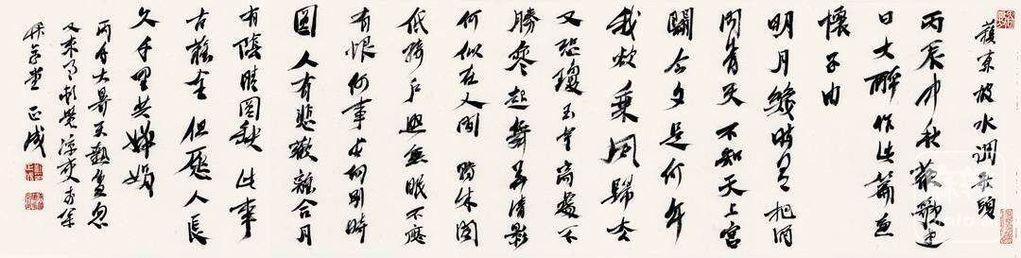 蘇東坡水调歌頭
丙辰中秋歡飲達
旦大醉作此篇兼
懷子由
明月幾時有把酒
問青天不知天上宮
闕今夕是何年
我欲乘風歸去
又恐瓊玉宇高處不
勝寒起舞弄清影
何似在人間轉朱閣
低綺戶照無眠不應
有恨何事长向別時
圓人有悲歡離合月
有陰晴圓缺此事
古難全但願人長
久千里共嬋娟
丙子大暑天熱忽
頓覺涼爽
正成